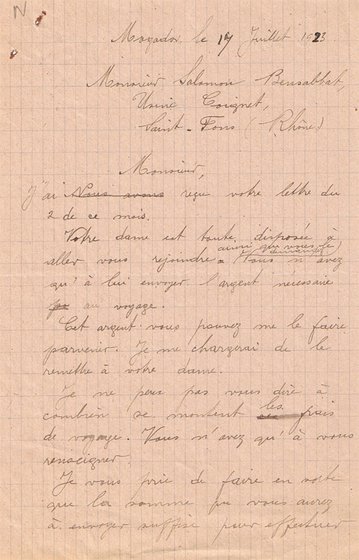 N
Mogador le 17 Juillet 1923
Monsieur Salomon Bensabhat,
Usine Coignet,
Saint-Fons (Rhône)
Monsieur,
J'ai Nous avons reçu votre lettre du
2 de ce mois.
Votre dame est toute disposée à
ainsi que vous le
aller vous rejoindre. Vous n'avez
qu'à lui envoyer l'argent necessaire
au voyage.
Cet argent vous pouvez me le faire
parvenir. Je me chargerai de le
remettre à votre dame.
Je ne peux pas vous dire à
combien se montent les frais
de voyage. Vous n'avez qu'à vous
renseigner.
Je vous prie de faire en sorte
que la somme que vous aurez
à envoyer suffise pour effectuer